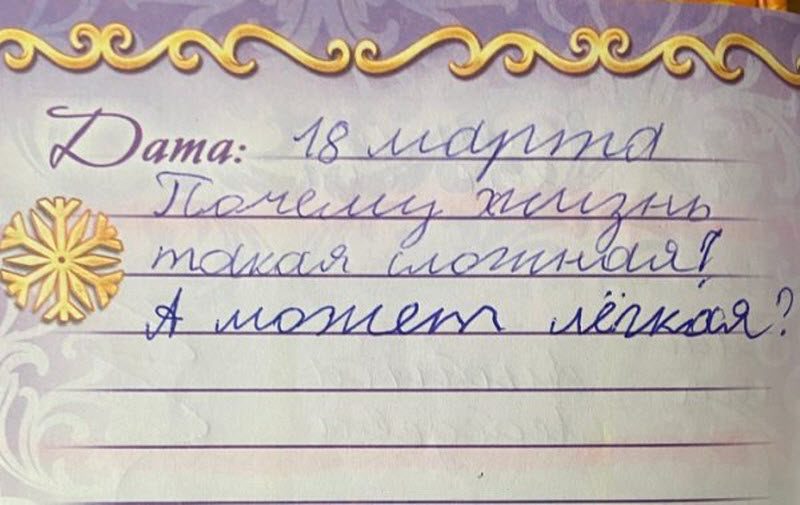 Дата: 18 марта
Почему жизнь
такая сложная?
А может лёгкая?